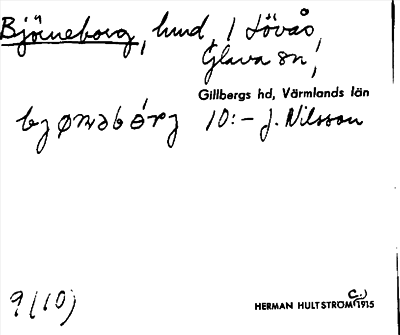 Björneborg, lund, i Lövås,
Glava sn,
Gillbergs hd, Värmlands län
bjønəbǿrj 10:- J. Nilsson
9(10)
HERMAN HULTSTRÖM (C.) 1915